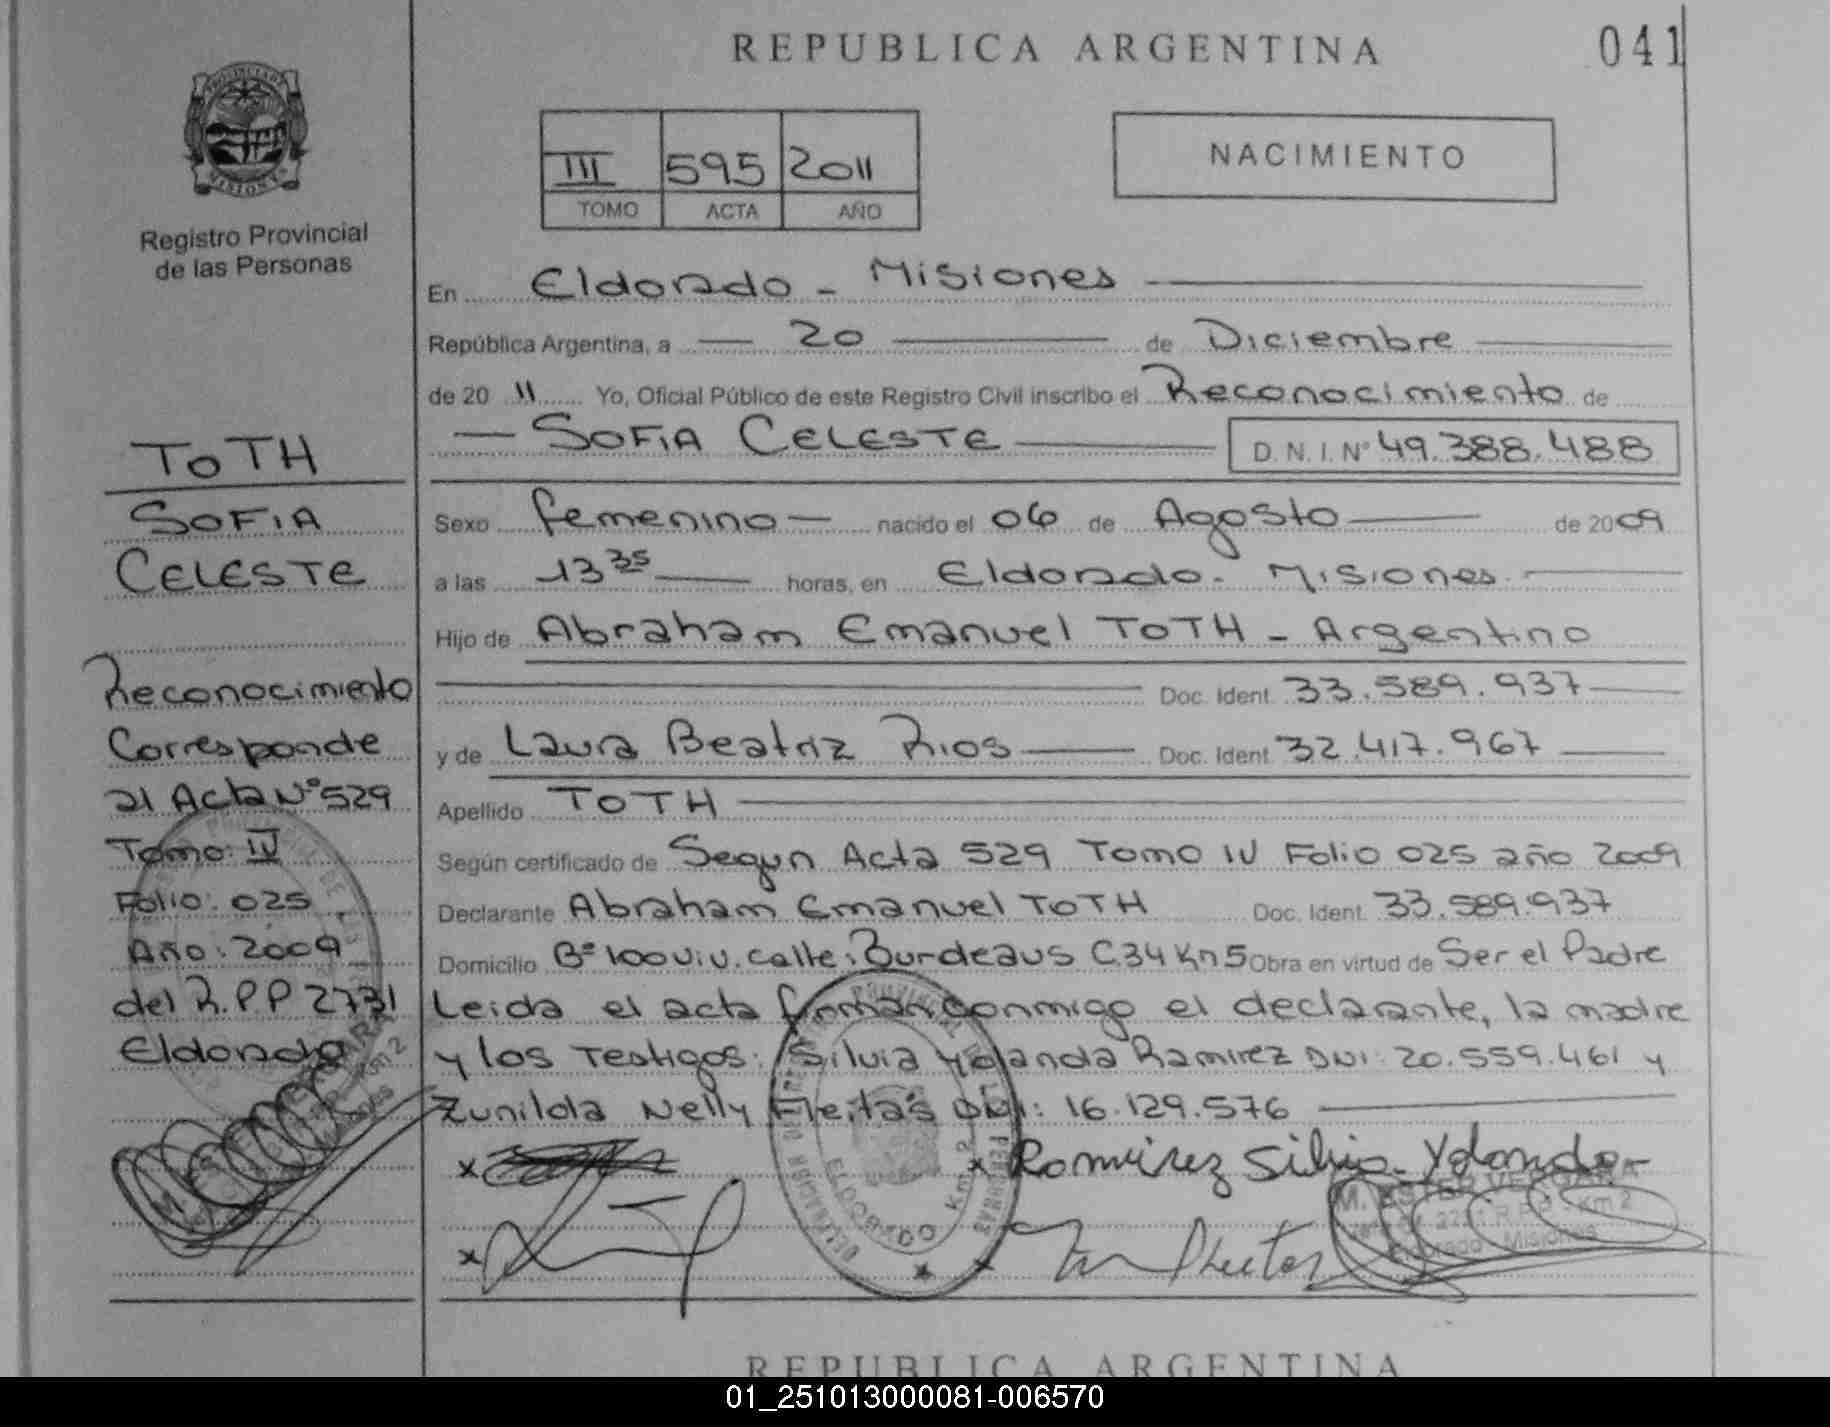 REPUBLICA ARGENTINA
041
PROVINCIA DE
MISIONES
Registro Provincial
de las Personas
III 595 2011
TOMO ACTA AÑO
NACIMIENTO
En Eldorado - Misiones
República Argentina, a 20 de Diciembre
de 20 11 Yo, Oficial Público de este Registro Civil inscribo el Reconocimiento de
SOFIA CELESTE D. N. I. Nº 49.388.488
Sexo femenino nacido el 06 de Agosto de 2009
a las 13 35 horas, en Eldorado - Misiones
Hijo de Abraham Emanuel TOTH - Argentino
Doc. Ident. 33.589.937
y de Laura Beatriz Rios Doc. Ident. 32.417.967
Apellido TOTH
Según certificado de Segun Acta 529 Tomo IV Folio 025 año 2009
Declarante Abraham Emanuel TOTH Doc. Ident. 33.589.937
Domicilio Bº 100 viv. calle: Burdeaus C.34 Km 5 Obra en virtud de Ser el Padre
Leida el acta firman conmigo el declarante, la madre
y los Testigos: Silvia Yolanda Ramirez DNI: 20.559.461 y
Zunilda Nelly Fleitas DNI: 16.129.576
Ramirez Silvia Yolanda
M. ESTER VERGARA
2731 R.P.P - Km 2
Eldorado - Misiones
ELDORADO Km. 2
TOTH
SOFIA
CELESTE
Reconocimiento
Corresponde
al Acta Nº 529
Tomo: IV
Folio: 025
Año: 2009
del R.P.P 2731
Eldorado
REPUBLICA ARGENTINA
01_251013000081-006570